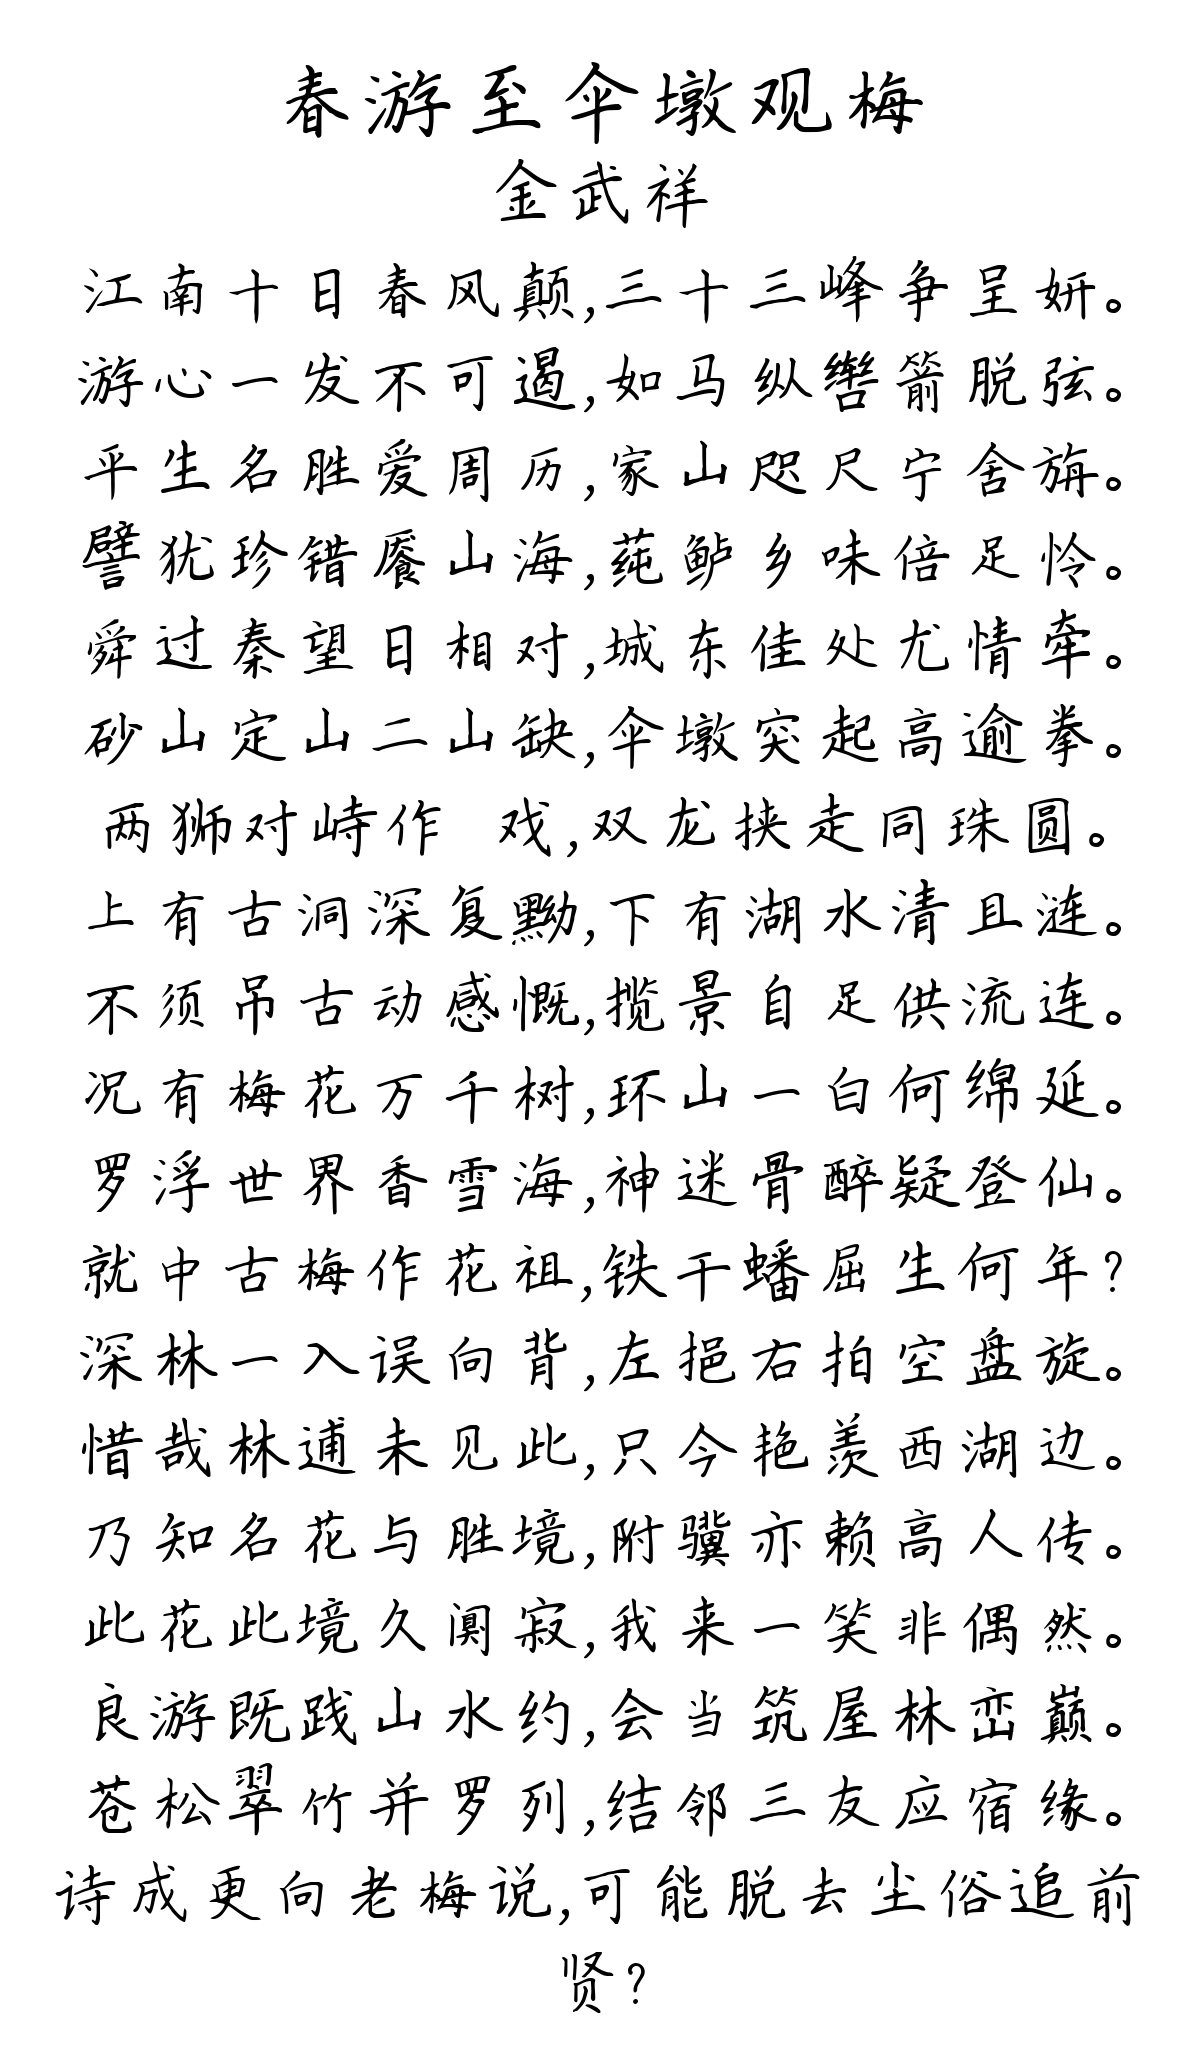 春游至伞墩观梅
金武祥
江南十日春风颠,三十三峰争呈妍。
游心一发不可遏,如马纵辔箭脱弦。
平生名胜爱周历,家山咫尺宁舍旃。
譬犹珍错餍山海,莼鲈乡味倍足怜。
舜过秦望日相对,城东佳处尤情牵。
砂山定山二山缺,伞墩突起高逾拳。
两狮对峙作 戏,双龙挟走同珠圆。
上有古洞深复黝,下有湖水清且涟。
不须吊古动感慨,揽景自足供流连。
况有梅花万千树,环山一白何绵延。
罗浮世界香雪海,神迷骨醉疑登仙。
就中古梅作花祖,铁干蟠屈生何年?
深林一入误向背,左挹右拍空盘旋。
惜哉林逋未见此,只今艳羡西湖边。
乃知名花与胜境,附骥亦赖高人传。
此花此境久阒寂,我来一笑非偶然。
良游既践山水约,会当筑屋林峦巅。
苍松翠竹并罗列,结邻三友应宿缘。
诗成更向老梅说,可能脱去尘俗追前
贤?